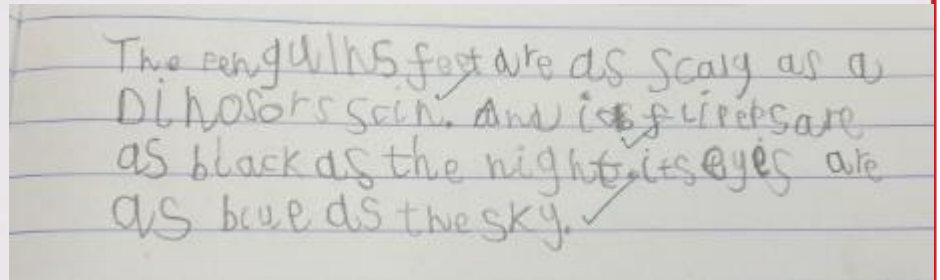 The penguins feet are as scaly as a
Dinosors scin. And its flipers are
as black as the night. its eyes are
as blue as the sky.